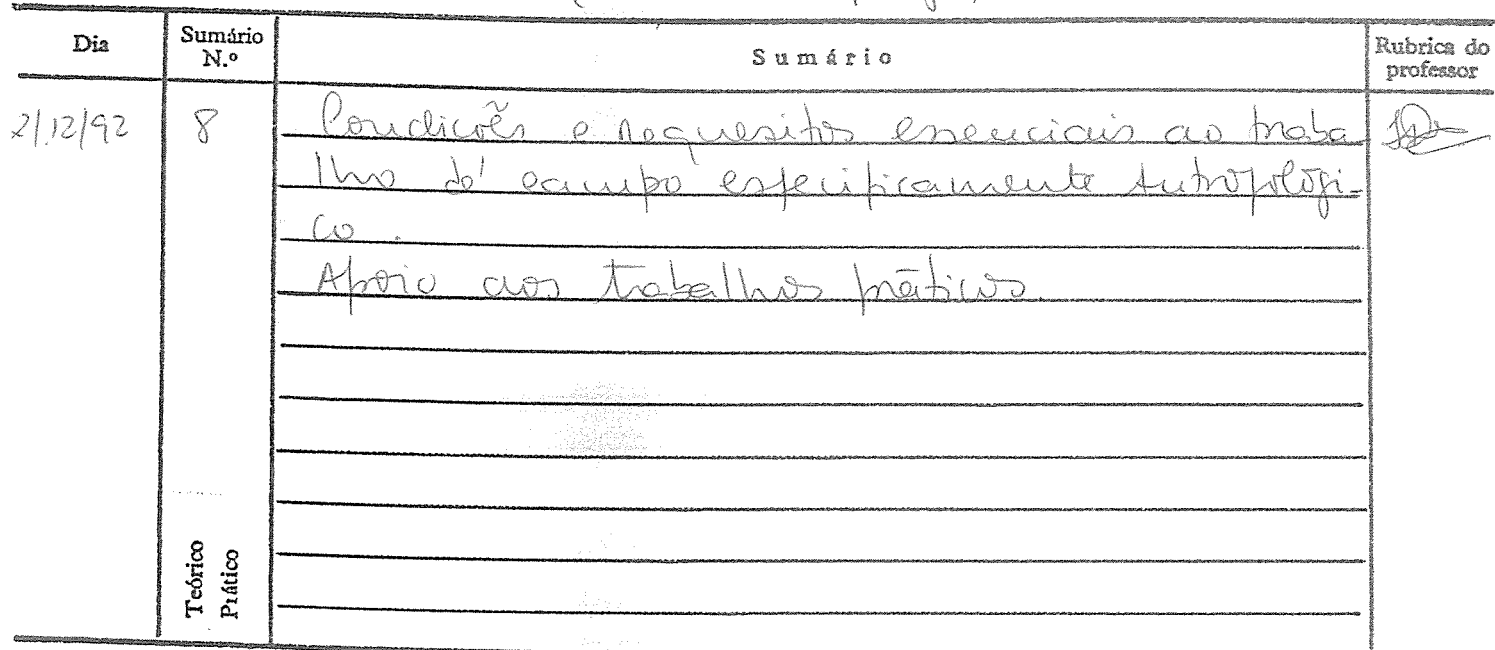 Dia
Sumário N.º
Sumário
Rubrica do professor
2/12/92
8
Condições e requesitos essenciais ao traba
lho de campo especificamente Antropológi-
co.
Apoio aos trabalhos práticos.
Teórico
Prático